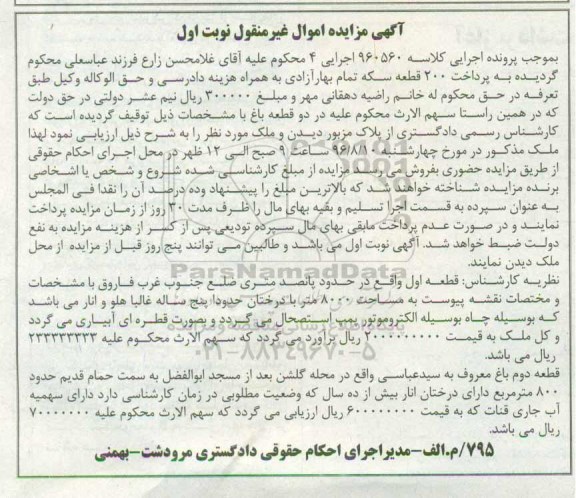 آگهی مزایده اموال غیرمنقول نوبت اول
بموجب پرونده اجرایی کلاسه ۹۶۰۵۶۰ اجرایی ۴ محکوم علیه آقای غلامحسن زارع فرزند عباسعلی محکوم
گردیده به پرداخت ۲۰۰ قطعه سکه تمام بهارآزادی به همراه هزینه دادرسی و حق الوکاله وکیل طبق
تعرفه در حق محکوم له خانم راضیه دهقانی مهر و مبلغ ۳۰۰۰۰۰ ریال نیم عشر دولتی در حق دولت
که در همین راستا سهم الارث محکوم علیه در دو قطعه باغ با مشخصات ذیل توقیف گردیده است که
کارشناس رسمی دادگستری از پلاک مزبور دیدن و ملک مورد نظر را به شرح ذیل ارزیابی نمود لهذا
ملک مذکور در مورخ چهارشنبه ۹۶/۸/۱۰ ساعت ۹ صبح الی ۱۲ ظهر در محل اجرای احکام حقوقی
از طریق مزایده حضوری بفروش می رسد مزایده از مبلغ کارشناسی شده شروع و شخص یا اشخاصی
برنده مزایده شناخته خواهند شد که بالاترین مبلغ را پیشنهاد وده درصد آن را نقدا فی المجلس
به عنوان سپرده به قسمت اجرا تسلیم و بقیه بهای مال را ظرف مدت ۳۰ روز از زمان مزایده پرداخت
نمایند و در صورت عدم پرداخت مابقی بهای مال سپرده تودیعی پس از کسر از هزینه مزایده به نفع
دولت ضبط خواهد شد. آگهی نوبت اول می باشد و طالبین می توانند پنج روز قبل از مزایده از محل
ملک دیدن نمایند.
نظریه کارشناس: قطعه اول واقع در حدود پانصد متری ضلع جنوب غرب فاروق با مشخصات
و مختصات نقشه پیوست به مساحت ۸۰۰۰ متر با درختان حدودا پنج ساله غالبا هلو و انار می باشد
که بوسیله چاه بوسیله الکتروموتور پمپ استحصال می گردد و بصورت قطره ای آبیاری می گردد
و کل ملک به قیمت ۲۰۰۰۰۰۰۰۰۰ ریال برآورد می گردد که سهم الارث محکوم علیه ۲۳۳۳۳۳۳۳۳
ریال می باشد.
قطعه دوم باغ معروف به سیدعباسی واقع در محله گلشن بعد از مسجد ابوالفضل به سمت حمام قدیم حدود
۸۰۰ مترمربع دارای درختان انار بیش از ده سال که وضعیت مطلوبی در زمان کارشناسی دارد دارای سهمیه
آب جاری قنات که به قیمت ۶۰۰۰۰۰۰۰۰ ریال ارزیابی می گردد که سهم الارث محکوم علیه ۷۰۰۰۰۰۰۰
ریال می باشد.
۷۹۵/م.الف-مدیراجرای احکام حقوقی دادگستری مرودشت-بهمنی
ParsNamadData
۰۲۱-۸۸۳۴۹۶۷۰-۵